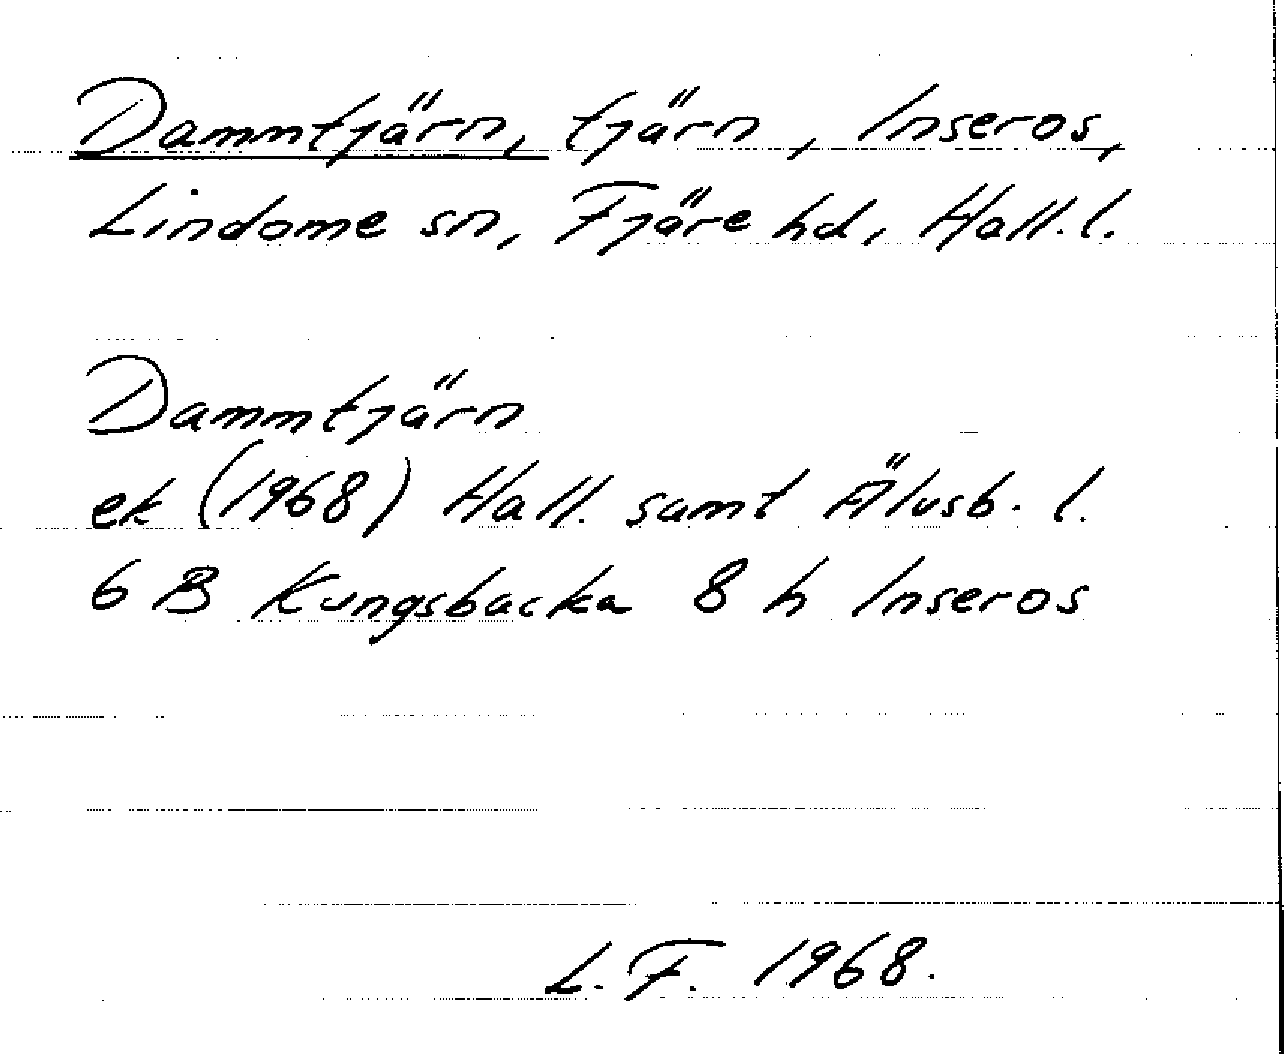 Dammtjärn, tjärn, Inseros,
Lindome sn, Fjäre hd, Hall. l.
Dammtjärn
ek (1968) Hall. samt Älvsb. l.
6 B Kungsbacka 8 h Inseros
L. F. 1968.